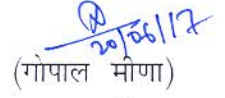 20/06/17
(गोपाल मीणा)